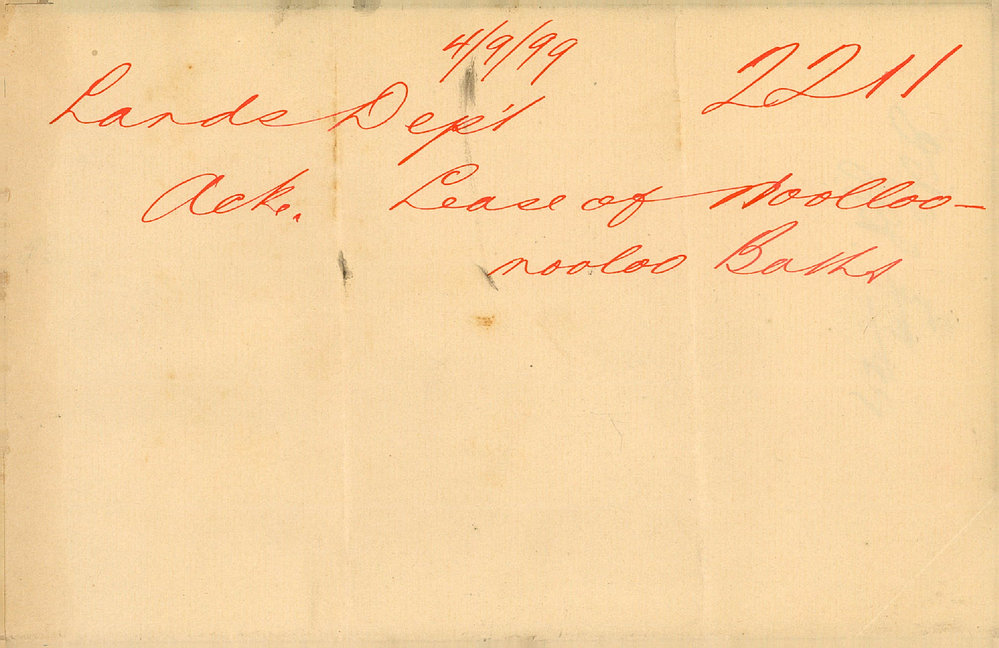 4/9/99
2211
Lands Dep't
Ack. Lease of Woolloo-
mooloo Baths